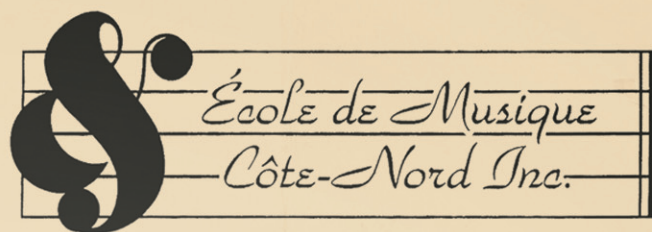 École de Musique
Côte-Nord Inc.